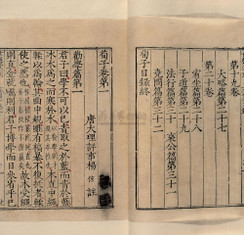 第十九卷
大略篇第二十七
第二十卷
宥坐篇第二十八
子道篇第二十九
法行篇第三十
哀公篇第三十一
堯問篇第三十二
荀子目錄終
荀子卷第一
唐大理評事楊倞註
勸學篇第一
君子曰學不可以已青取之於藍而青於藍
冰水為之而寒於水木直中繩
輮以為輪其曲中規雖有槁暴不復挺者
輮使之然也
故木受繩
則直金就礪則利君子博學而日參省乎己